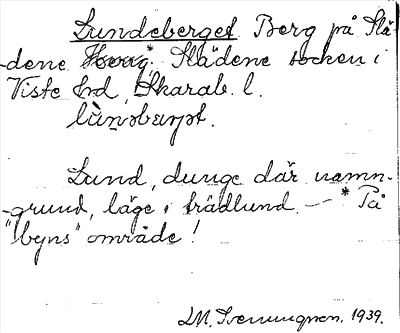 Lundeberget Berg på Slä-
dene Slädene socken i
Viste hd, Skarab. l.
lùnsbærjət.
Lund, dunge där namn-
-grund, läge i trädlund. — * På
"byns" område!
1939.